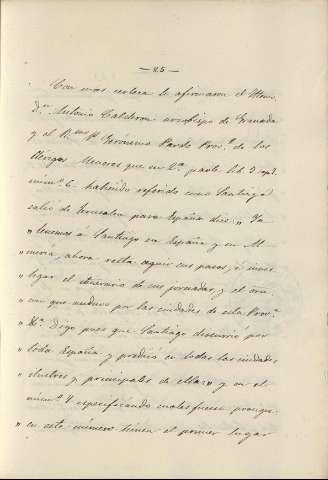 — 25 —
Con mas certeza lo afirmaron el Ilmo.
D.n Antonio Calderon arzobispo de Granada
y el R.mo P. Gerónimo Pardo Prov.l de los
Clérigos Menores que en 2.a parte lib. 3
núm.o 6. habiendo referido como Santiago
salió de Jerusalen para España dice "Ya
" tenemos á Santiago en España y en
" ahora resta seguir sus pasos, é inves-
" tigar el itinerario de sus jornadas, y el
" con que anduvo por las ciudades de esta Prov.a
" Digo pues que Santiago discurrió por
" toda España y predicó en todas las ciudades
" ilustres y principales de ella:" y en el
núm.o 7 especificando cuales fuesen prosigue:
" en este número tienen el primer lugar